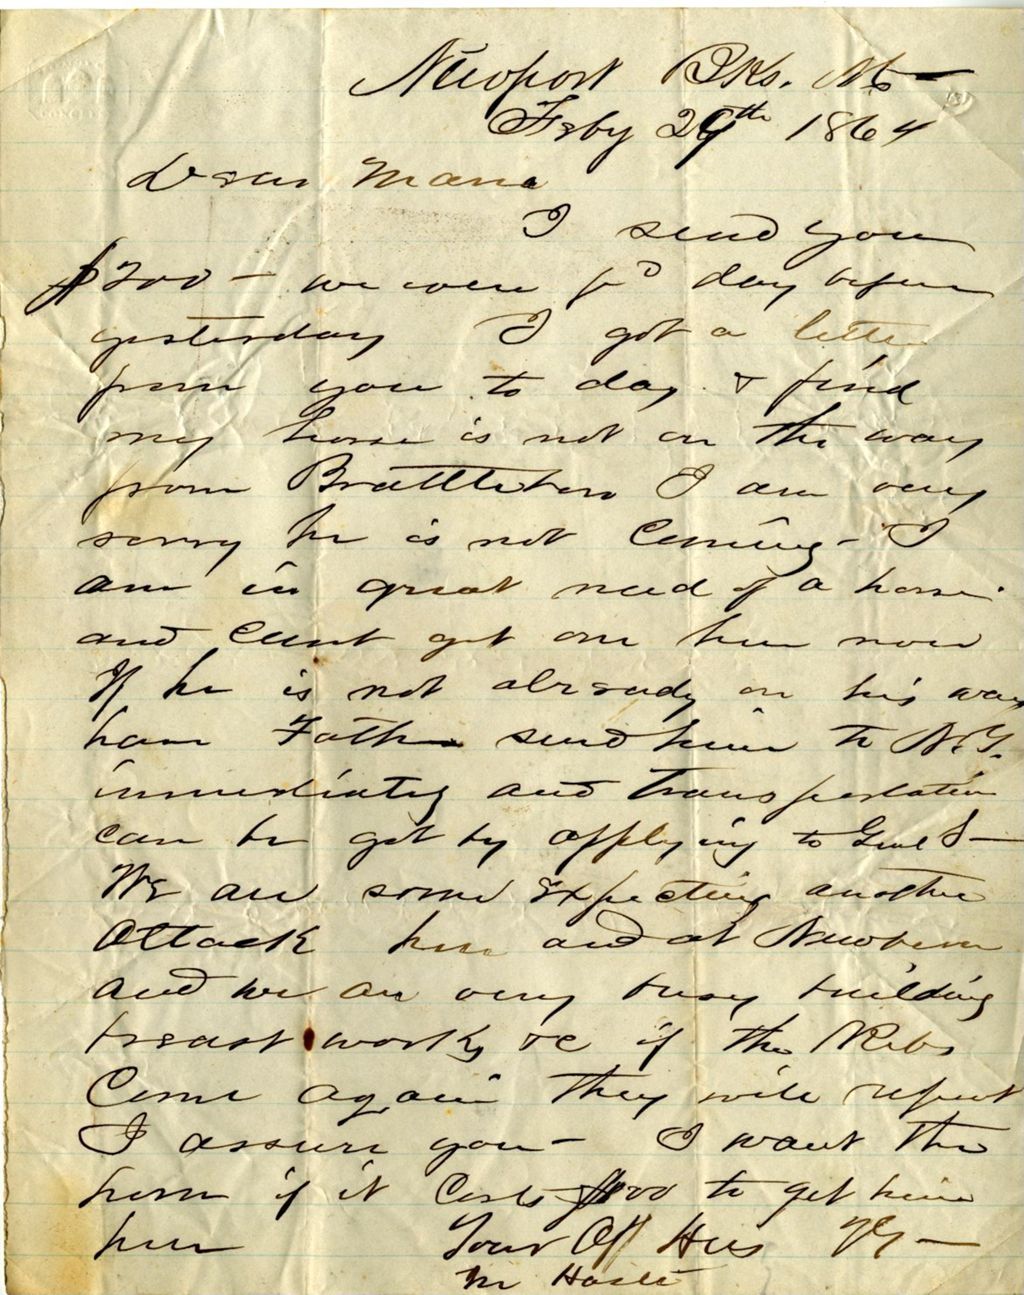 Newport Bks. N.C.—
Feby 29th 1864
Dear Maria
I send you
$200 — we were pd day before
yesterday I got a letter
from you to day & find
my horse is not on the way
from Brattleboro I am very
sorry he is not Coming — I
am in great need of a horse
and Cant get one here now
If he is not already on his way
have Father send him to N.Y.
immediately and transportation
can be got by applying to
We are some expecting another
Attack here and at Newbern
and we are very busy building
breast works &c if the Rebs
Come again they will repent
I assure you — I want the
horse if it Costs $100 to get him
here Your Aff Hus VG—
In Haste